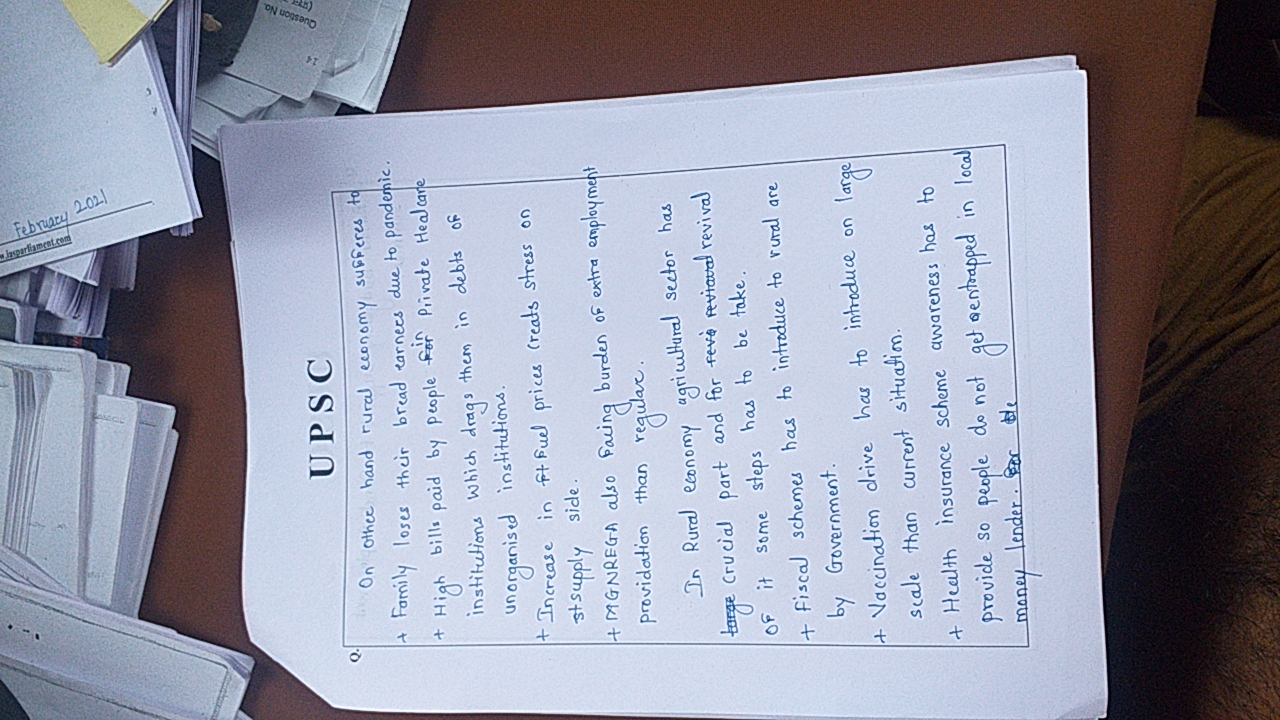 UPSC
Q.
On other hand rural economy sufferes to
+ Family loses their bread earners due to pandemic.
+ High bills paid by people for in Private Healcare
institutions which drags them in debts of
unorganised institutions.
+ Increase in ft Fuel prices creats stress on
st supply side.
+ MGNREGA also Facing burden of extra employment
providation than regular.
In Rural economy agricultural sector has
large crucial part and for revival
OF it some steps has to be take.
+ Fiscal schemes has to introduce to rural are
by Government.
+ Vaccination drive has to introduce on large
scale than current situation.
+ Health insurance scheme awareness has to
provide so people do not get entrapped in local
money lender. For the
February 2021
.Iasparliament.com
Question No.
14